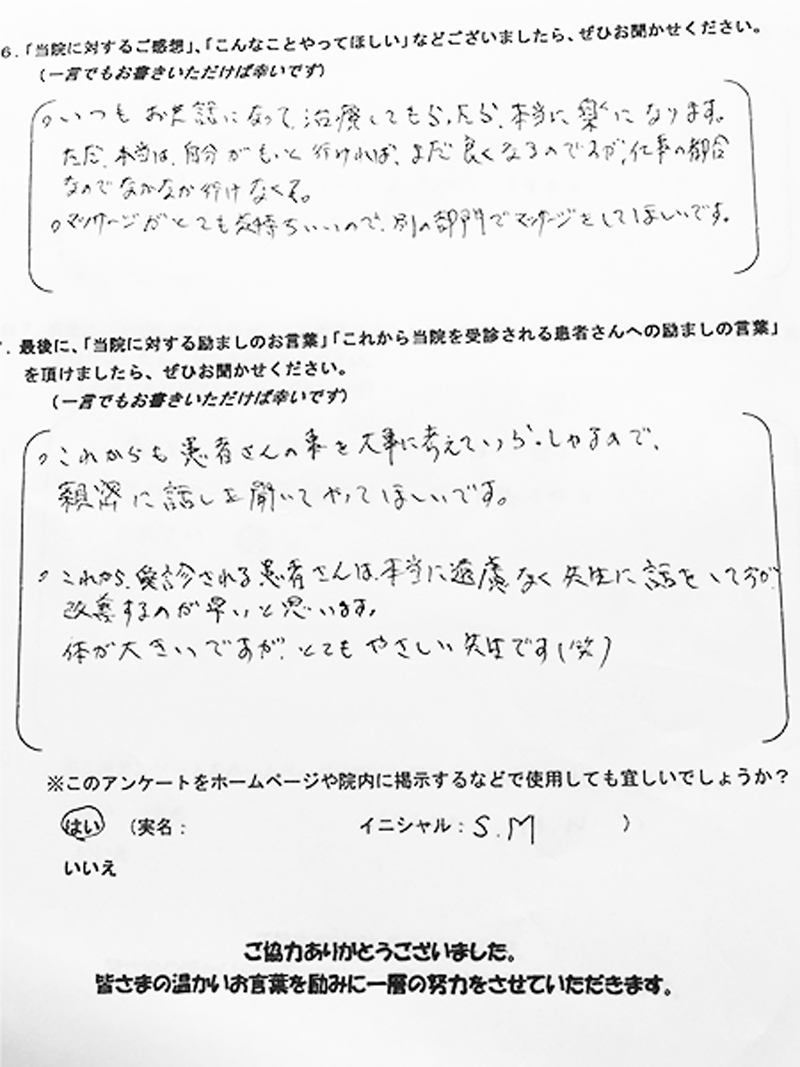 6.「当院に対するご感想」、「こんなことやってほしい」などございましたら、ぜひお聞かせください。
(一言でもお書きいただけば幸いです)
○いつもお世話になって、治療してもらったら、本当に楽になります。
ただ、本当は、自分がもっと行ければ、まだ良くなるのですが、仕事の都合
なのでなかなか行けなくて。
○マッサージがとても気持ちいいので、別の部門でマッサージをしてほしいです。
.最後に、「当院に対する励ましのお言葉」「これから当院を受診される患者さんへの励ましの言葉」
を頂けましたら、ぜひお聞かせください。
(一言でもお書きいただけば幸いです)
○これからも患者さんの事を大事に考えていらっしゃるので、
親密に話しを聞いてやってほしいです。
○これから、受診される患者さんは、本当に遠慮なく先生に話をして方が
改善するのが早いと思います。
体が大きいですが、とてもやさしい先生です(笑)
※このアンケートをホームページや院内に掲示するなどで使用しても宜しいでしょうか?
はい (実名: イニシャル:S.M )
いいえ
ご協力ありがとうございました。
皆さまの温かいお言葉を励みに一層の努力をさせていただきます。